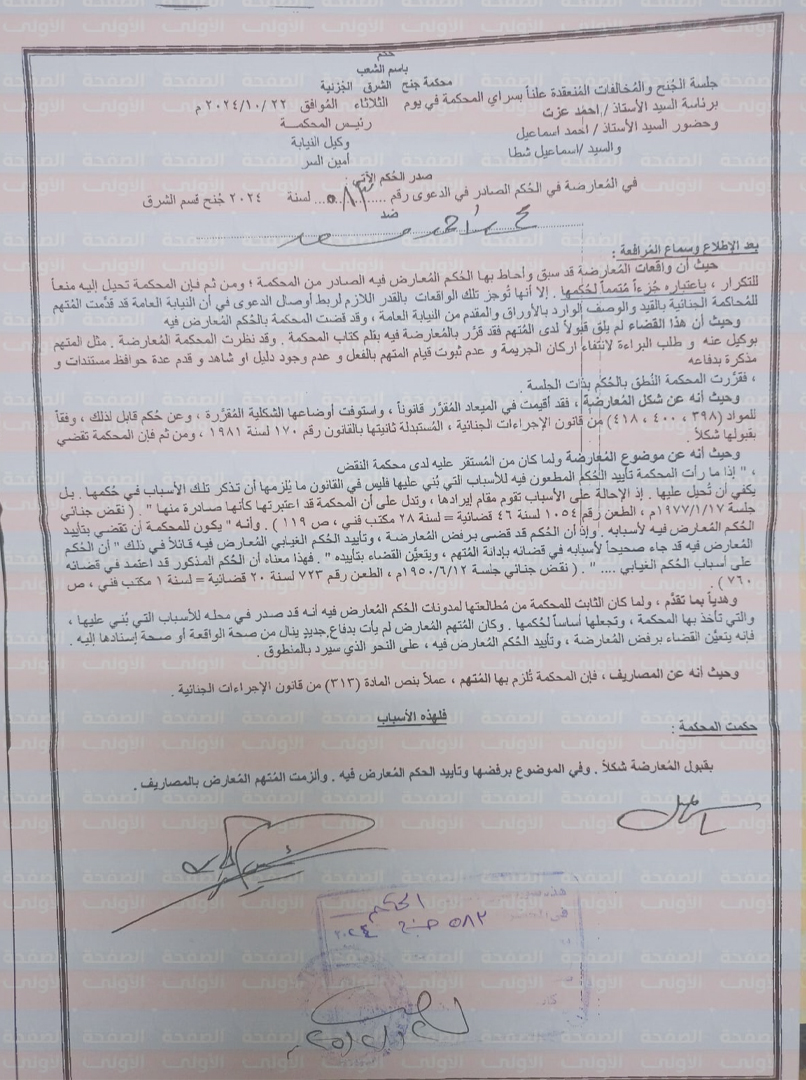 حكم
باسم الشعب
محكمة جنح الشرق الجزئية
جلسة الجُنح والمُخالفات المُنعقدة علناً بسراي المحكمة في يوم الثلاثاء المُوافق ٢٢ /١٠/ ٢٠٢٤ م
برئاسة السيد الأستاذ / احمد عزت رئيس المحكمــة
وحضور السيد الأستاذ / احمد اسماعيل وكيل النيابة
والسيد /اسماعيل شطا أمين السر
صدر الحُكم الآتي :
في المُعارضة في الحُكم الصادر في الدعوى رقم ....٥٨٢.... لسنة ٢٠٢٤ جُنح قسم الشرق
ضد
أحمد
بعد الإطلاع وسماع المُرافعة :
حيث أن واقعات المُعارضة قد سبق وأحاط بها الحُكم المُعارض فيه الصادر من المحكمة ؛ ومن ثم فإن المحكمة تحيل إليه منعاً
للتكرار ، باعتباره جُزءاً مُتمماً لحُكمها . إلا أنها تُوجز تلك الواقعات بالقدر اللازم لربط أوصال الدعوى في أن النيابة العامة قد قدَّمت المُتهم
للمُحاكمة الجنائية بالقيد والوصف الوارد بالأوراق والمقدم من النيابة العامة ، وقد قضت المحكمة بالحُكم المُعارض فيه
وحيث أن هذا القضاء لم يلق قبولاً لدى المُتهم فقد قرَّر بالمُعارضة فيه بقلم كتاب المحكمة . وقد نظرت المحكمة المُعارضة . مثل المتهم
بوكيل عنه و طلب البراءة لانتفاء اركان الجريمة و عدم ثبوت قيام المتهم بالفعل و عدم وجود دليل او شاهد و قدم عدة حوافظ مستندات و
مذكرة بدفاعه
، فقرَّرت المحكمة النُطق بالحُكم بذات الجلسة .
وحيث أنه عن شكل المُعارضة ، فقد أقيمت في الميعاد المُقرَّر قانوناً ، واستوفت أوضاعها الشكلية المُقرَّرة ، وعن حُكم قابل لذلك ، وفقاً
للمواد (٣٩٨ ، ٤٠٠ ، ٤١٨) من قانون الإجراءات الجنائية ، المُستبدلة ثانيتها بالقانون رقم ١٧٠ لسنة ١٩٨١ ، ومن ثم فإن المحكمة تقضي
بقبولها شكلاً .
وحيث أنه عن موضوع المُعارضة ولما كان من المُستقر عليه لدى محكمة النقض
، " إذا ما رأت المحكمة تأييد الحُكم المطعون فيه للأسباب التي بُني عليها فليس في القانون ما يُلزمها أن تذكر تلك الأسباب في حُكمها . بل
يكفي أن تُحيل عليها . إذ الإحالة على الأسباب تقوم مقام إيرادها ، وتدل على أن المحكمة قد اعتبرتها كأنها صادرة منها " . ( نقض جنائي
جلسة ١٩٧٧/١/١٧م ، الطعن رقم ١٠٥٤ لسنة ٤٦ قضائية = لسنة ٢٨ مكتب فني ، ص ١١٩ ) . وأنه " يكون للمحكمة أن تقضي بتأييد
الحُكم المُعارض فيه لأسبابه . وإذ أن الحُكم قد قضى برفض المُعارضة ، وتأييد الحُكم الغيابي المُعارض فيه قائلاً في ذلك " أن الحُكم
المُعارض فيه قد جاء صحيحاً لأسبابه في قضائه بإدانة المُتهم ، ويتعيَّن القضاء بتأييده " . فهذا معناه أن الحُكم المذكور قد اعتمد في قضائه
على أسباب الحُكم الغيابي .... " . ( نقض جنائي جلسة ١٩٥٠/٦/١٢م ، الطعن رقم ٧٢٣ لسنة ٢٠ قضائية = لسنة ١ مكتب فني ، ص
٧٦٠ ) .
وهدياً بما تقدَّم ، ولما كان الثابت للمحكمة من مُطالعتها لمدونات الحُكم المُعارض فيه أنه قد صدر في محله للأسباب التي بُني عليها ،
والتي تأخذ بها المحكمة ، وتجعلها أساساً لحُكمها . وكان المُتهم المُعارض لم يأت بدفاع جديد ينال من صحة الواقعة أو صحة إسنادها إليه .
فإنه يتعيَّن القضاء برفض المُعارضة ، وتأييد الحُكم المُعارض فيه ، على النحو الذي سيرد بالمنطوق .
وحيث أنه عن المصاريف ، فإن المحكمة تُلزم بها المُتهم ، عملاً بنص المادة (٣١٣) من قانون الإجراءات الجنائية .
فلهذه الأسباب
حكمت المحكمة :
بقبول المُعارضة شكلاً . وفي الموضوع برفضها وتأييد الحكم المُعارض فيه . وألزمت المُتهم المُعارض بالمصاريف .
الحكم
٥٨٢ جنح ٢٠٢٤